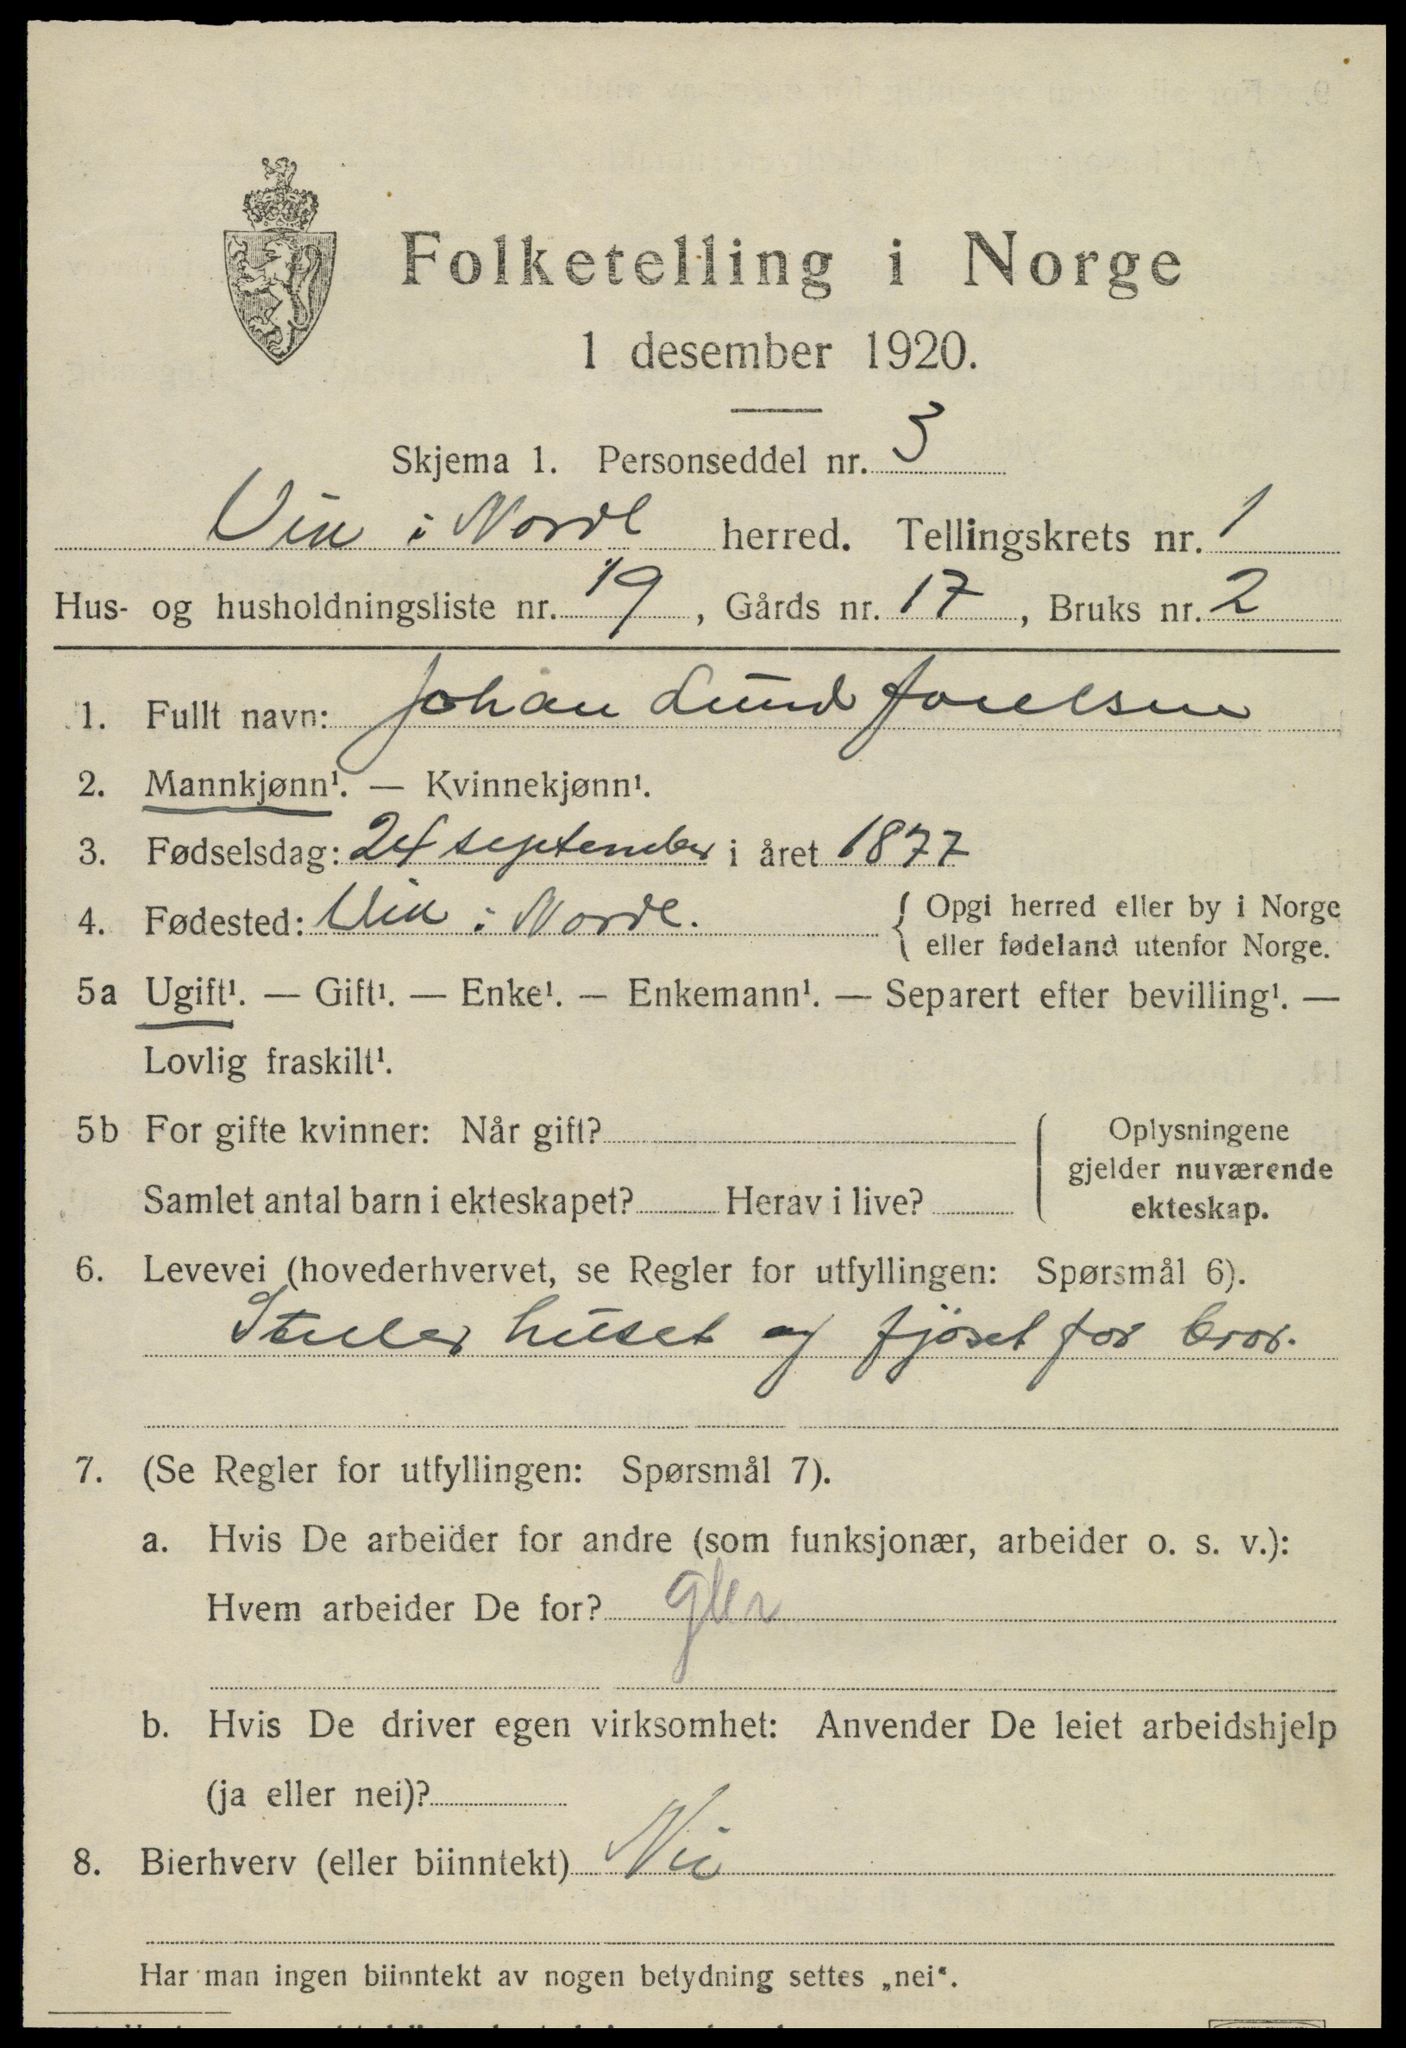 Folketelling i Norge
1 desember 1920.
Skjema 1. Personseddel nr. 3
Vik i Nordl herred. Tellingskrets nr. 1
Hus- og husholdningsliste nr. 19, Gårds nr. 17, Bruks nr. 2
1. Fullt navn: Johan Lund
2. Mannkjønn¹. — Kvinnekjønn¹.
3. Fødselsdag: 24 september i året 1877
4. Fødested: Vik i Nordl. { Opgi herred eller by i Norge
eller fødeland utenfor Norge.
5a Ugift¹. — Gift¹. — Enke¹. — Enkemann¹. — Separert efter bevilling¹. —
Lovlig fraskilt¹.
5b For gifte kvinner: Når gift?
Samlet antal barn i ekteskapet? Herav i live?
Oplysningene
gjelder nuværende
ekteskap.
6. Levevei (hovederhvervet, se Regler for utfyllingen: Spørsmål 6).
Steller huset og fjöset for bror.
7. (Se Regler for utfyllingen: Spørsmål 7).
a. Hvis De arbeider for andre (som funksjonær, arbeider o. s. v.):
Hvem arbeider De for?
b. Hvis De driver egen virksomhet: Anvender De leiet arbeidshjelp
(ja eller nei)?
8. Bierhverv (eller biinntekt) Nei
Har man ingen biinntekt av nogen betydning settes „nei“.